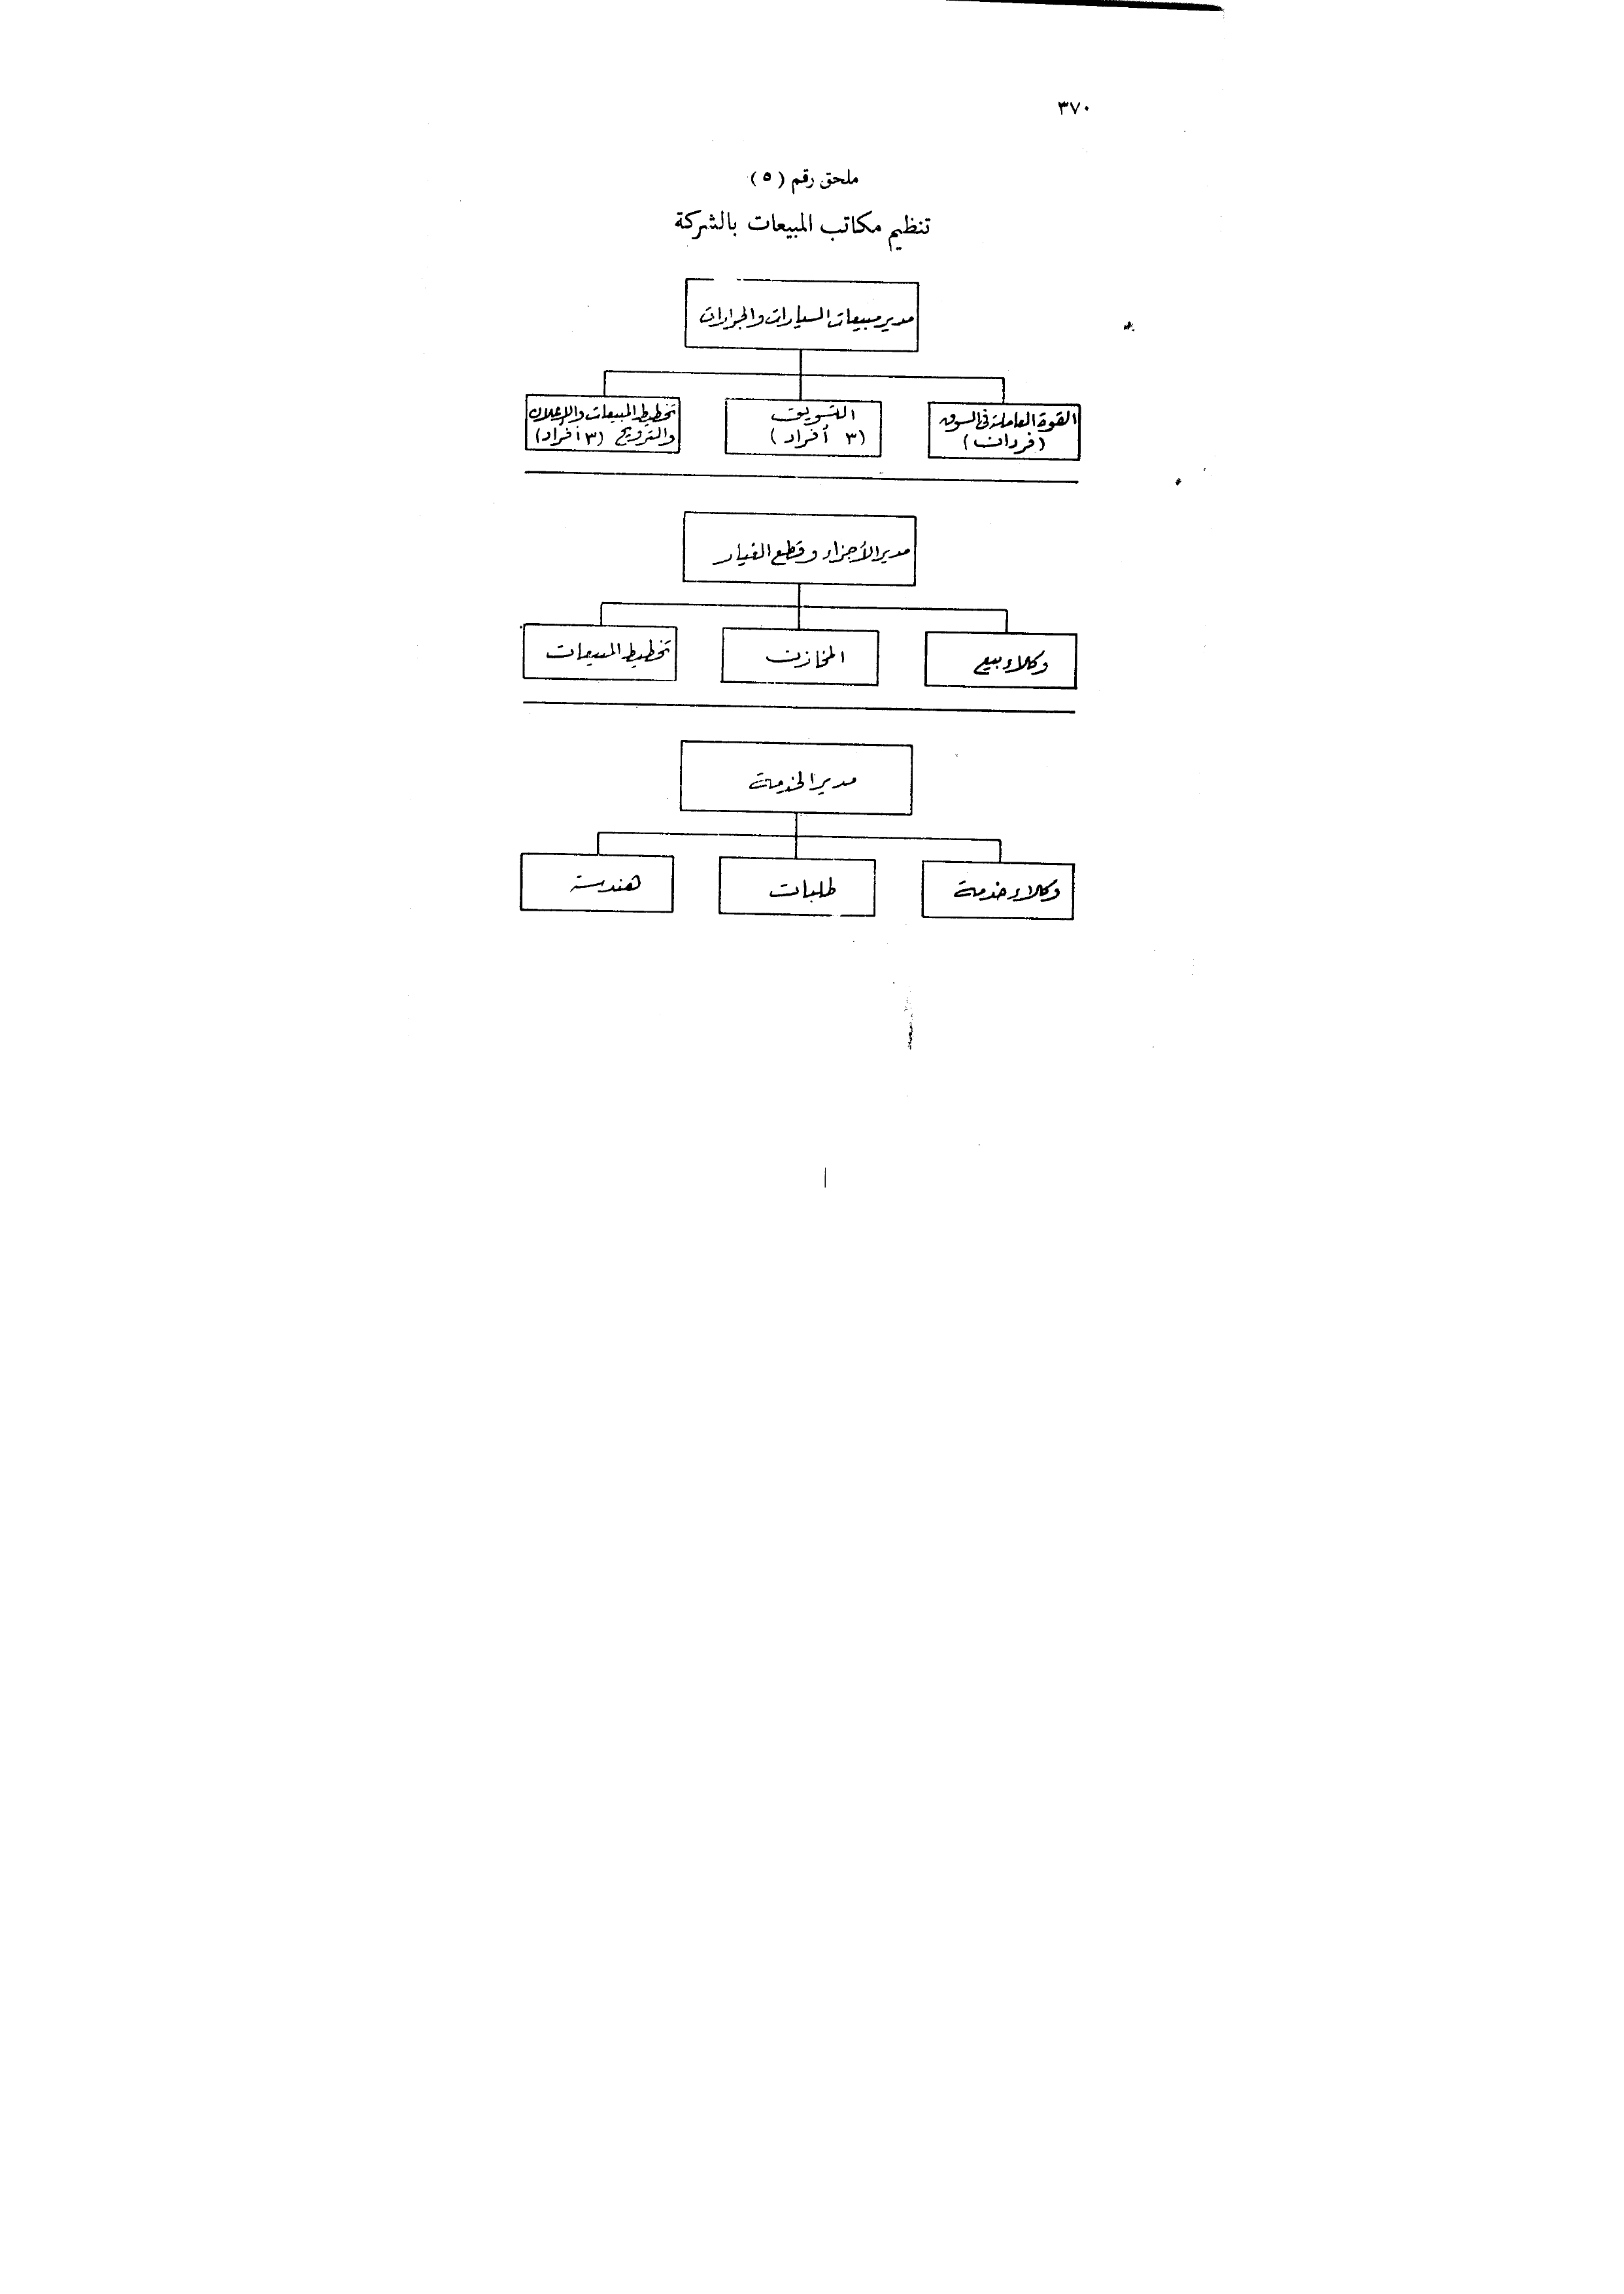 ٣٧٠
ملحق رقم (٥)
تنظيم مكاتب المبيعات بالشركة
مدير مبيعات السيارات والجرارات
القوة العاملة فى السوق
(فردان)
التسويق
(٣ أفراد)
تخطيط المبيعات والإعلان
والترويج (٣ أفراد)
مدير الأجزاء وقطع الغيار
وكلاء بيع
المخازن
تخطيط المبيعات
مدير الخدمة
وكلاء خدمة
طلبات
هندسة